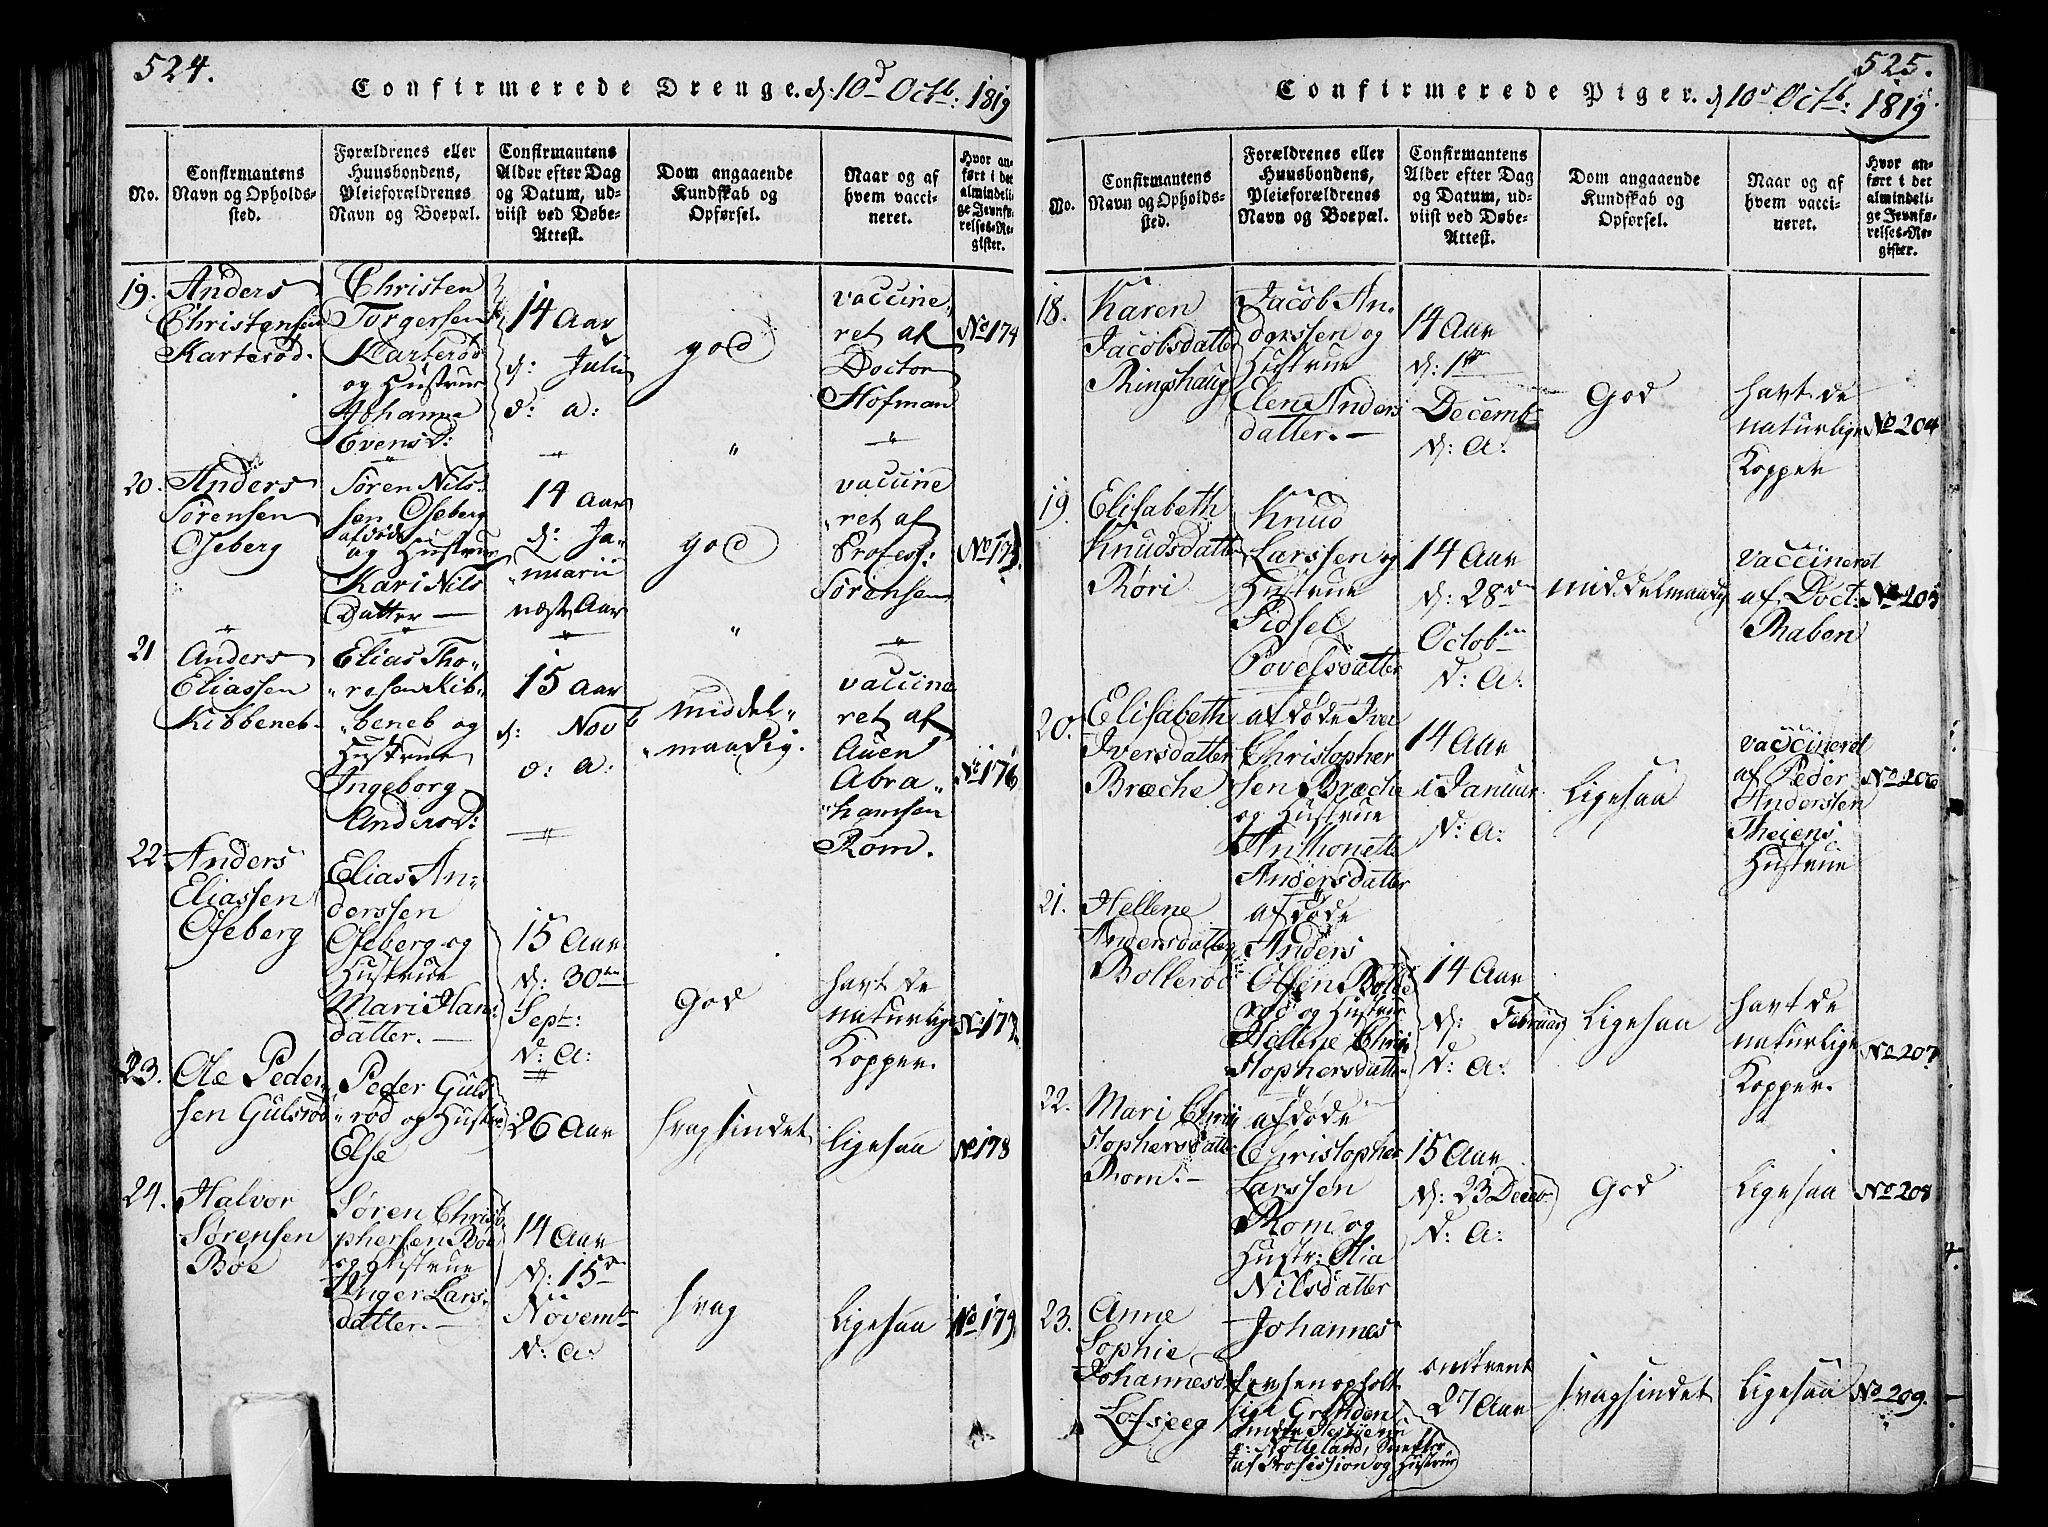 524.
Confirmerede Drenge. d: 10d Octb: 1819
No.
Confirmantens
Navn og Opholds-
sted.
Forældrenes eller
Huusbondens,
Pleieforældrenes
Navn og Boepæl.
Confirmantens
Alder efter Dag
og Datum, ud-
viist ved Døbe-
Attest.
Dom angaaende
Kundskab og
Opførsel.
Naar og af
hvem vacci-
neret.
Hvor an-
ført i det
almindeli-
ge Jevnfø-
relses-Re-
gister.
19.
Anders
Christensen
Karterød.
Christen
Torgersen
Karterød
og Hustrue
Johanne
Evensd:
14 Aar
d: Julii
d: a:
god
vaccine
ret af
Doctor
Hofman
No 174
20.
Anders
Sørensen
Oseberg
Søren Nils-
sen Oseberg
afdøde
og Hustrue
Kari Nils
Datter —
14 Aar
d: Ja-
nuarii
næste Aar
god
vaccine
ret af
Profess:
Sørensen
No 175
21
Anders
Eliassen
Kibbeneb-
Elias Tho-
resen Kib-
beneb og
Hustrue
Ingeborg
Andersd:
15 Aar
d: Novb
d: a:
middel-
maadig.
vaccine
ret af
Auen
Abra-
hamsen
Rom.
No 176
22
Anders
Eliassen
Oseberg
Elias An-
derssen
Oseberg og
Hustrue
Mari Hans
datter. —
15 Aar
d: 30te
Sept:
d: A:
God
havt de
naturlige
Kopper.
No 177
23.
Ole Peder-
sen Gulsrød
Peder Guls
rød og Hustrue
Else
26 Aar
svagsindet
ligesaa
No 178
24.
Halvor
Sørensen
Bøe
Søren Christo-
phersen Bøe
og Hustrue
Inger Lars-
datter. —
14 Aar
d: 15de
Novemb
d: A:
svag
ligesaa
No 179
525.
Confirmerede Piger. d 10d Octb: 1819.
No.
Confirmantens
Navn og Opholds-
sted.
Forældrenes eller
Huusbondens,
Pleieforældrenes
Navn og Boepæl.
Confirmantens
Alder efter Dag
og Datum, ud-
viist ved Døbe-
Attest.
Dom angaaende
Kundskab og
Opførsel.
Naar og af
hvem vacci-
neret.
Hvor an-
ført i det
almindeli-
ge Jevnfø-
relses-Re-
gister.
18.
Karen
Jacobsdatter
Ringshaug
Jacob An-
derssen og
Hustrue
Elen Anders
datter. —
14 Aar
d: 1te
Decemb
d: A:
God
havt de
naturlige
Kopper
No 204
19.
Elisabeth
Knudsdatter
Røri
Knud
Larssen og
Hustrue
Sidsel
Povelsdatter
14 Aar
d: 28de
Octob
d: A:
middelmaadig
vaccineret
af Doct:
Raben
No 205
20.
Elisabeth
Iversdatter
Bræche
afdøde Iver
Christopher
sen Bræche
og Hustrue
Anthonette
Andersdatter
14 Aar
i Januar.
d: A:
Ligesaa
vaccineret
af Peder
Anderssen
Theiens
Hustrue
No 206
21.
Hellene
Andersdatter
Bollerød
afdøde
Anders
Olsen Bolle
rød og Hustrue
Hellene Chri
stophersdatter
14 Aar
d: Februar
d: A:
Ligesaa
havt de
naturlige
Kopper.
No 207
22.
Mari Chri
stophersdatter
Rom. —
afdøde
Christopher
Larssen
Rom og
Hustr: Olia
Nilsdatter
15 Aar
d: 23 Decemb
d: A:
God
Ligesaa
No 208
23.
Anne
Sophie
Johannesd
Lofseeg
Johannes
Iversen opholt
sig i Grenden
Nøtteland, Snedker
af Profession og Hustrue
omtrent
27 Aar
svagsindet
Ligesaa
No 209.